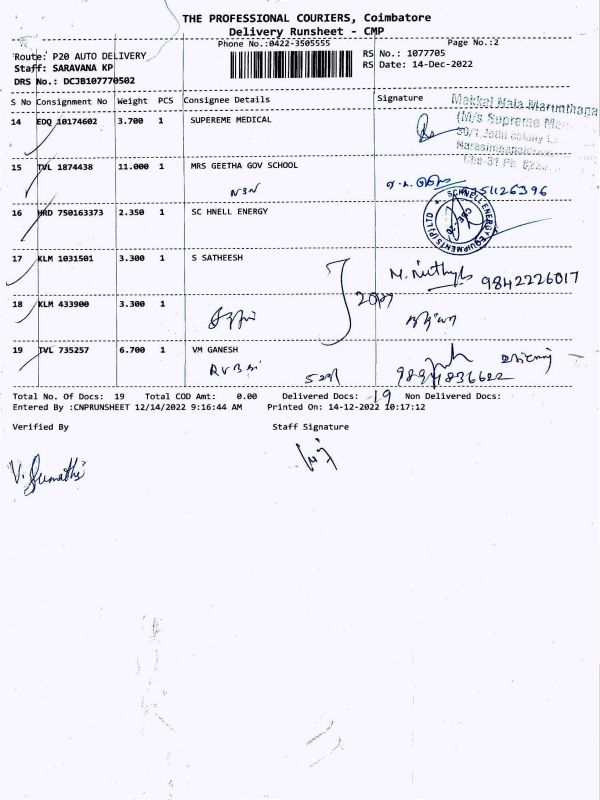 THE PROFESSIONAL COURIERS, Coimbatore
Delivery Runsheet - CMP
Phone No.:0422-3505555 Page No.:2
Route: P20 AUTO DELIVERY RS No.: 1077705
Staff: SARAVANA KP RS Date: 14-Dec-2022
DRS No.: DCJB107770502
S No Consignment No Weight PCS Consignee Details Signature
Makkal Nala Marunthaga
14 EDQ 10174602 3.700 1 SUPEREME MEDICAL
(M/s Supreme Me
15 TVL 1874438 11.000 1 MRS GEETHA GOV SCHOOL
16 HRD 750163373 2.350 1 SC HNELL ENERGY
SCHNELL ENERGY EQUIPMENTS (P) LTD
17 KLM 1031501 3.300 1 S SATHEESH
9842226017
18 KLM 433900 3.300 1
19 TVL 735257 6.700 1 VM GANESH
Total No. Of Docs: 19 Total COD Amt: 0.00 Delivered Docs: 19 Non Delivered Docs:
Entered By :CNPRUNSHEET 12/14/2022 9:16:44 AM Printed On: 14-12-2022 10:17:12
Verified By Staff Signature
V. Sumathi